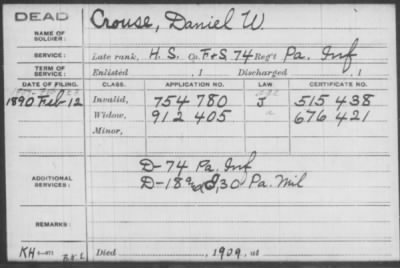 DEAD
NAME OF SOLDIER: Crouse, Daniel W.
SERVICE: Late rank, H. S. Co. F&S, 74 Reg't Pa. Inf
TERM OF SERVICE: Enlisted , 1 Discharged , 1
DATE OF FILING. CLASS. APPLICATION NO. LAW CERTIFICATE NO.
1890 Feb 12 Invalid, 754 780 J 515 438
Widow, 912 405 676 421
Minor,
ADDITIONAL SERVICES: D-74 Pa. Inf
D-18 and 30 Pa. Mil
REMARKS:
KH
Died , 1909, at